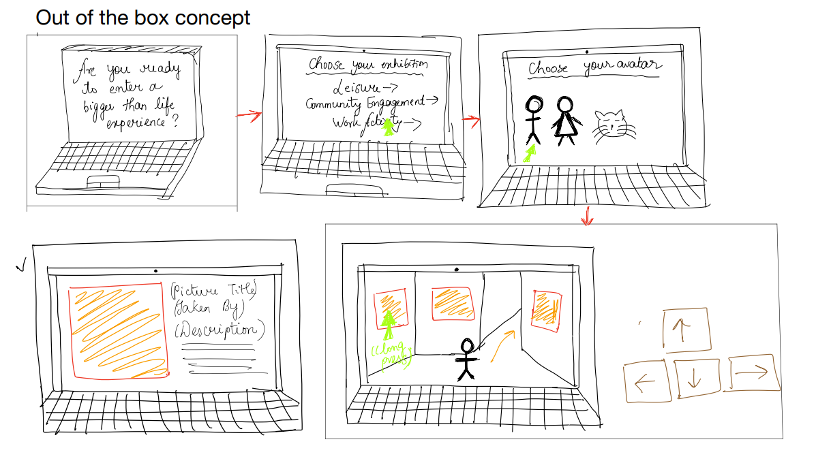 Out of the box concept
Are you ready
to enter a
bigger than life
experience?
Choose your exhibition
Leisure →
Community Engagement →
Work Activity →
Choose your avatar
(long
press)
(Picture Title)
(Taken By)
(Description)